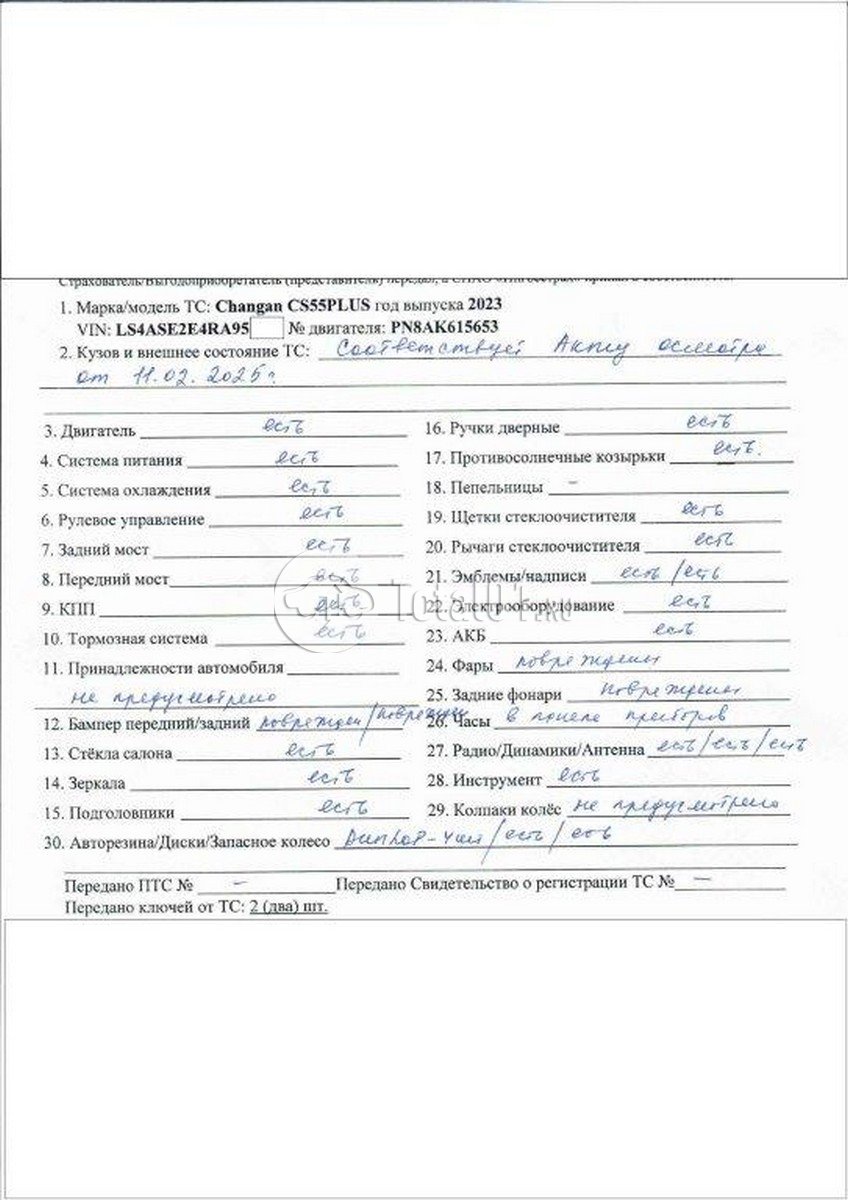 Страхователь/Выгодоприобретатель (представитель) передал, а СПАО «Ингосстрах» принял в собственность:
1. Марка/модель ТС: Changan CS55PLUS год выпуска 2023
VIN: LS4ASE2E4RA95 № двигателя: PN8AK615653
2. Кузов и внешнее состояние ТС: Соответствует Акту осмотра
от 11.02.2025г.
3. Двигатель есть
4. Система питания есть
5. Система охлаждения есть
6. Рулевое управление есть
7. Задний мост есть
8. Передний мост есть
9. КПП есть
10. Тормозная система есть
11. Принадлежности автомобиля
не предусмотрено
12. Бампер передний/задний поврежден/поврежден
13. Стёкла салона есть
14. Зеркала есть
15. Подголовники есть
16. Ручки дверные есть
17. Противосолнечные козырьки есть.
18. Пепельницы –
19. Щетки стеклоочистителя есть
20. Рычаги стеклоочистителя есть
21. Эмблемы/надписи есть/есть
22. Электрооборудование есть
23. АКБ есть
24. Фары повреждены
25. Задние фонари повреждены
26. Часы в панеле приборов
27. Радио/Динамики/Антенна есть/есть/есть
28. Инструмент есть
29. Колпаки колёс не предусмотрено
30. Авторезина/Диски/Запасное колесо Dunlop-4шт/есть/есть
Передано ПТС № – Передано Свидетельство о регистрации ТС № –
Передано ключей от ТС: 2 (два) шт.
Total01.ru